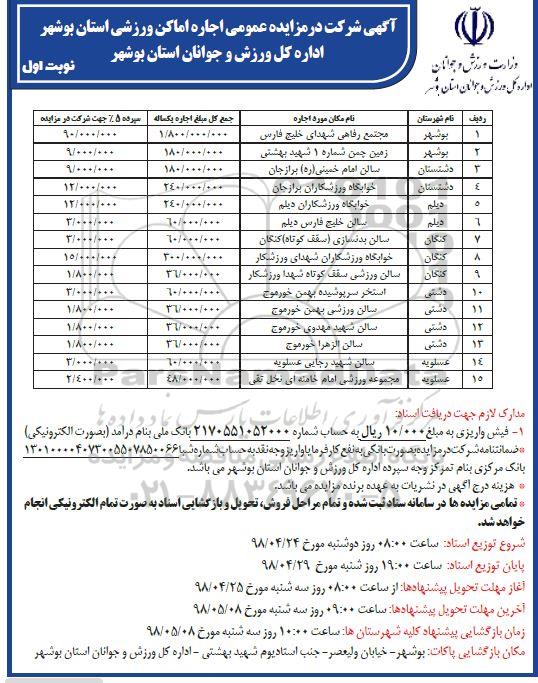 آگهی شرکت در مزایده عمومی اجاره اماکن ورزشی استان بوشهر
اداره کل ورزش و جوانان استان بوشهر
نوبت اول
وزارت ورزش و جوانان
اداره کل ورزش و جوانان استان بوشهر
ردیف نام شهرستان نام مکان مورد اجاره جمع کل مبلغ اجاره یکساله سپرده ۵٪ جهت شرکت در مزایده
۱ بوشهر مجتمع رفاهی شهدای خلیج فارس ۱/۸۰۰/۰۰۰/۰۰۰ ۹۰/۰۰۰/۰۰۰
۲ بوشهر زمین چمن شماره ۱ شهید بهشتی ۱۸۰/۰۰۰/۰۰۰ ۹/۰۰۰/۰۰۰
۳ دشتستان سالن امام خمینی(ره) برازجان ۱۸۰/۰۰۰/۰۰۰ ۹/۰۰۰/۰۰۰
۴ دشتستان خوابگاه ورزشکاران برازجان ۲۴۰/۰۰۰/۰۰۰ ۱۲/۰۰۰/۰۰۰
۵ دیلم خوابگاه ورزشکاران دیلم ۲۴۰/۰۰۰/۰۰۰ ۱۲/۰۰۰/۰۰۰
۶ دیلم سالن خلیج فارس دیلم ۶۰/۰۰۰/۰۰۰ ۳/۰۰۰/۰۰۰
۷ کنگان سالن بدنسازی (سقف کوتاه)کنگان ۶۰/۰۰۰/۰۰۰ ۳/۰۰۰/۰۰۰
۸ کنگان خوابگاه ورزشکاران شهدای ورزشکار ۳۰۰/۰۰۰/۰۰۰ ۱۵/۰۰۰/۰۰۰
۹ کنگان سالن ورزشی سقف کوتاه شهدا ورزشکار ۳۶/۰۰۰/۰۰۰ ۱/۸۰۰/۰۰۰
۱۰ دشتی استخر سرپوشیده بهمن خورموج ۶۰/۰۰۰/۰۰۰ ۳/۰۰۰/۰۰۰
۱۱ دشتی سالن ورزشی بهمن خورموج ۳۶/۰۰۰/۰۰۰ ۱/۸۰۰/۰۰۰
۱۲ دشتی سالن شهید مهدوی خورموج ۳۶/۰۰۰/۰۰۰ ۱/۸۰۰/۰۰۰
۱۳ دشتی سالن الزهرا خورموج ۳۶/۰۰۰/۰۰۰ ۱/۸۰۰/۰۰۰
۱۴ عسلویه سالن شهید رجایی عسلویه ۶۰/۰۰۰/۰۰۰ ۳/۰۰۰/۰۰۰
۱۵ عسلویه مجموعه ورزشی امام خامنه ای نخل تقی ۴۸/۰۰۰/۰۰۰ ۲/۴۰۰/۰۰۰
مدارک لازم جهت دریافت اسناد:
۱- فیش واریزی به مبلغ ۱۰/۰۰۰ ریال به حساب شماره ۲۱۷۰۵۵۱۰۵۲۰۰۰ بانک ملی بنام درآمد (بصورت الکترونیکی)
*ضمانتنامه شرکت در مزایده بصورت بانکی به نفع کارفرما یا واریز وجه نقد به حساب شماره شبا ۱۳۰۱۰۰۰۰۴۰۷۳۰۰۵۵۰۷۸۵۰۰۶۶
بانک مرکزی بنام تمرکز وجه سپرده اداره کل ورزش و جوانان استان بوشهر می باشد.
* هزینه درج آگهی در نشریات به عهده برنده مزایده می باشد.
* تمامی مزایده ها در سامانه ستاد ثبت شده و تمام مراحل فروش، تحویل و بازگشایی اسناد به صورت تمام الکترونیکی انجام
خواهد شد.
شروع توزیع اسناد: ساعت ۰۸:۰۰ روز دوشنبه مورخ ۹۸/۰۴/۲۴
پایان توزیع اسناد: ساعت ۱۹:۰۰ روز شنبه مورخ ۹۸/۰۴/۲۹
آغاز مهلت تحویل پیشنهادها: از ساعت ۰۸:۰۰ روز سه شنبه مورخ ۹۸/۰۴/۲۵
آخرین مهلت تحویل پیشنهادها: ساعت ۰۹:۰۰ روز سه شنبه مورخ ۹۸/۰۵/۰۸
زمان بازگشایی پیشنهاد کلیه شهرستان ها: ساعت ۱۰:۰۰ روز سه شنبه مورخ ۹۸/۰۵/۰۸
مکان بازگشایی پاکات: بوشهر- خیابان ولیعصر- جنب استادیوم شهید بهشتی - اداره کل ورزش و جوانان استان بوشهر